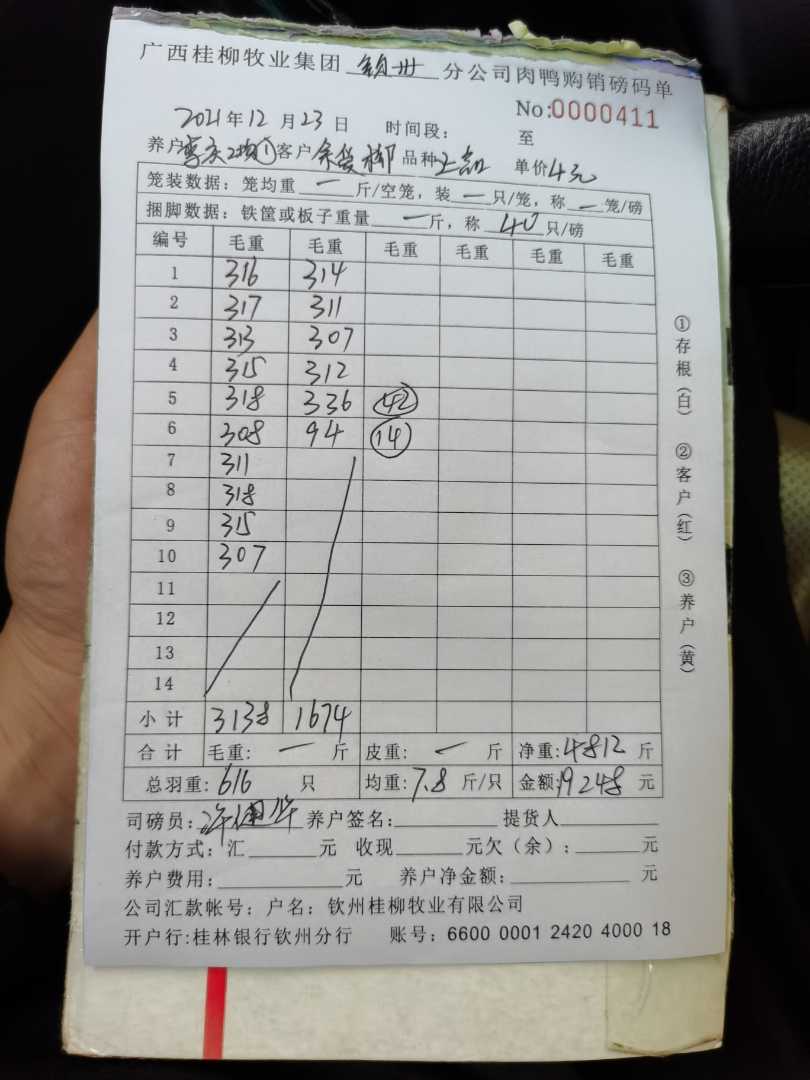 广西桂柳牧业集团 钦州 分公司肉鸭购销磅码单
No:0000411
2021年12月23日 时间段: 至
养户 客户 品种 单价4元
笼装数据: 笼均重 一 斤/空笼, 装 一 只/笼, 称 一 笼/磅
捆脚数据: 铁筐或板子重量 一 斤, 称 40 只/磅
编号 毛重 毛重 毛重 毛重 毛重 毛重
1 316 314
2 317 311
3 313 307
4 315 312
5 318 336 42
6 308 94 14
7 311
8 318
9 315
10 307
11
12
13
14
小计 3138 1674
合计 毛重: 一 斤 皮重: 一 斤 净重:4812 斤
总羽重: 616 只 均重:7.8 斤/只 金额:19248 元
司磅员: 养户签名: 提货人
付款方式: 汇 元 收现 元欠(余): 元
养户费用: 元 养户净金额: 元
公司汇款帐号: 户名: 钦州桂柳牧业有限公司
开户行:桂林银行钦州分行 账号: 6600 0001 2420 4000 18
①存根(白) ②客户(红) ③养户(黄)